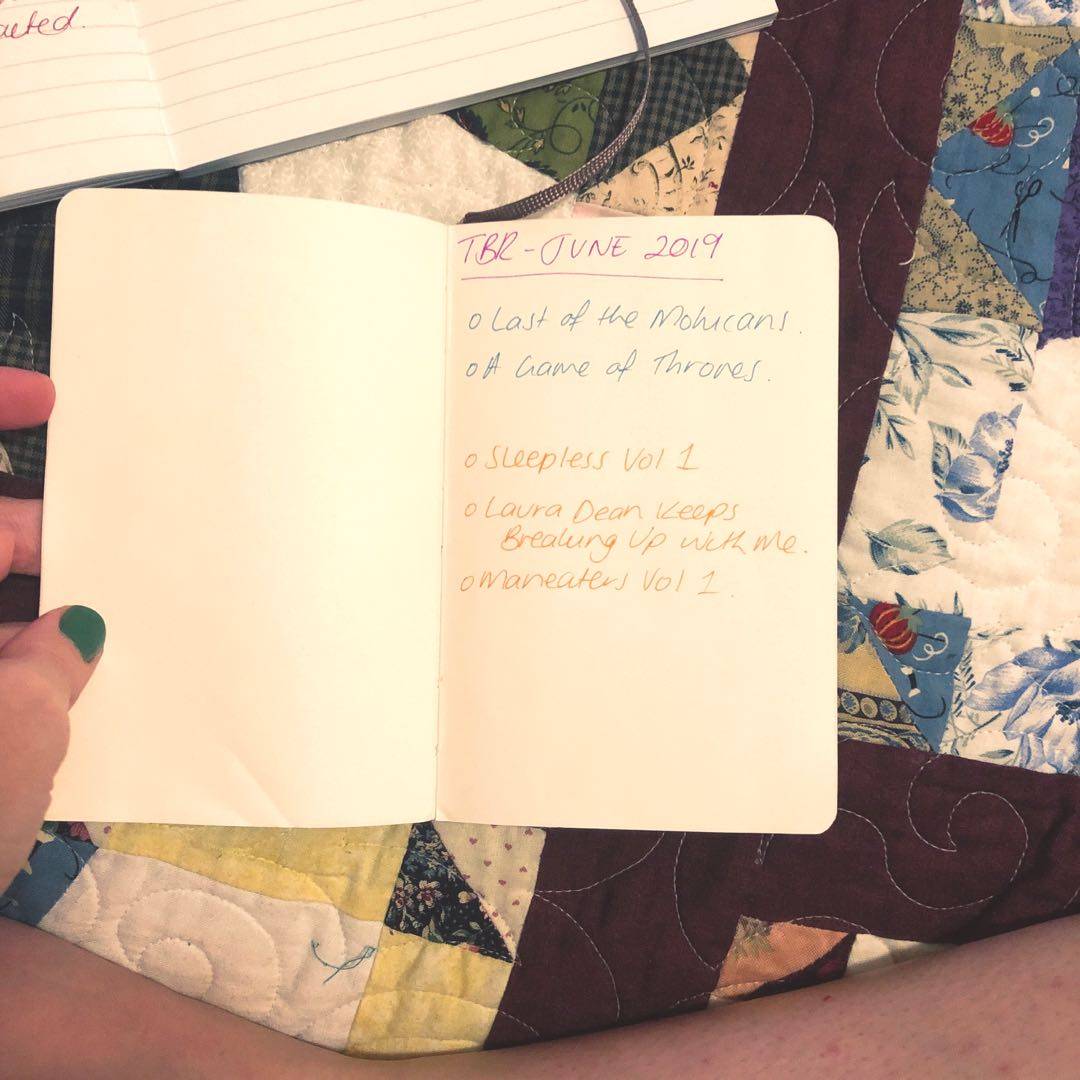 TBR - JUNE 2019
o Last of the Mohicans.
o A Game of Thrones.
o Sleepless Vol 1
o Laura Dean Keeps
Breaking Up with Me.
o Maneaters Vol 1.